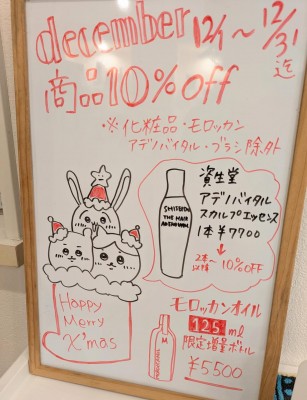 december 12/1〜12/31迄
商品10%off
・※化粧品・モロッカン
アデノバイタル・ブラシ除外
資生堂
アデノバイタル
スカルプエッセンス
1本¥7700
↓
2本〜以降 10%OFF
SHISEIDO
THE HAIR
ADENOVITAL
Happy
Merry
X'mas
モロッカンオイル
125ml
限定増量ボトル
¥5500
M